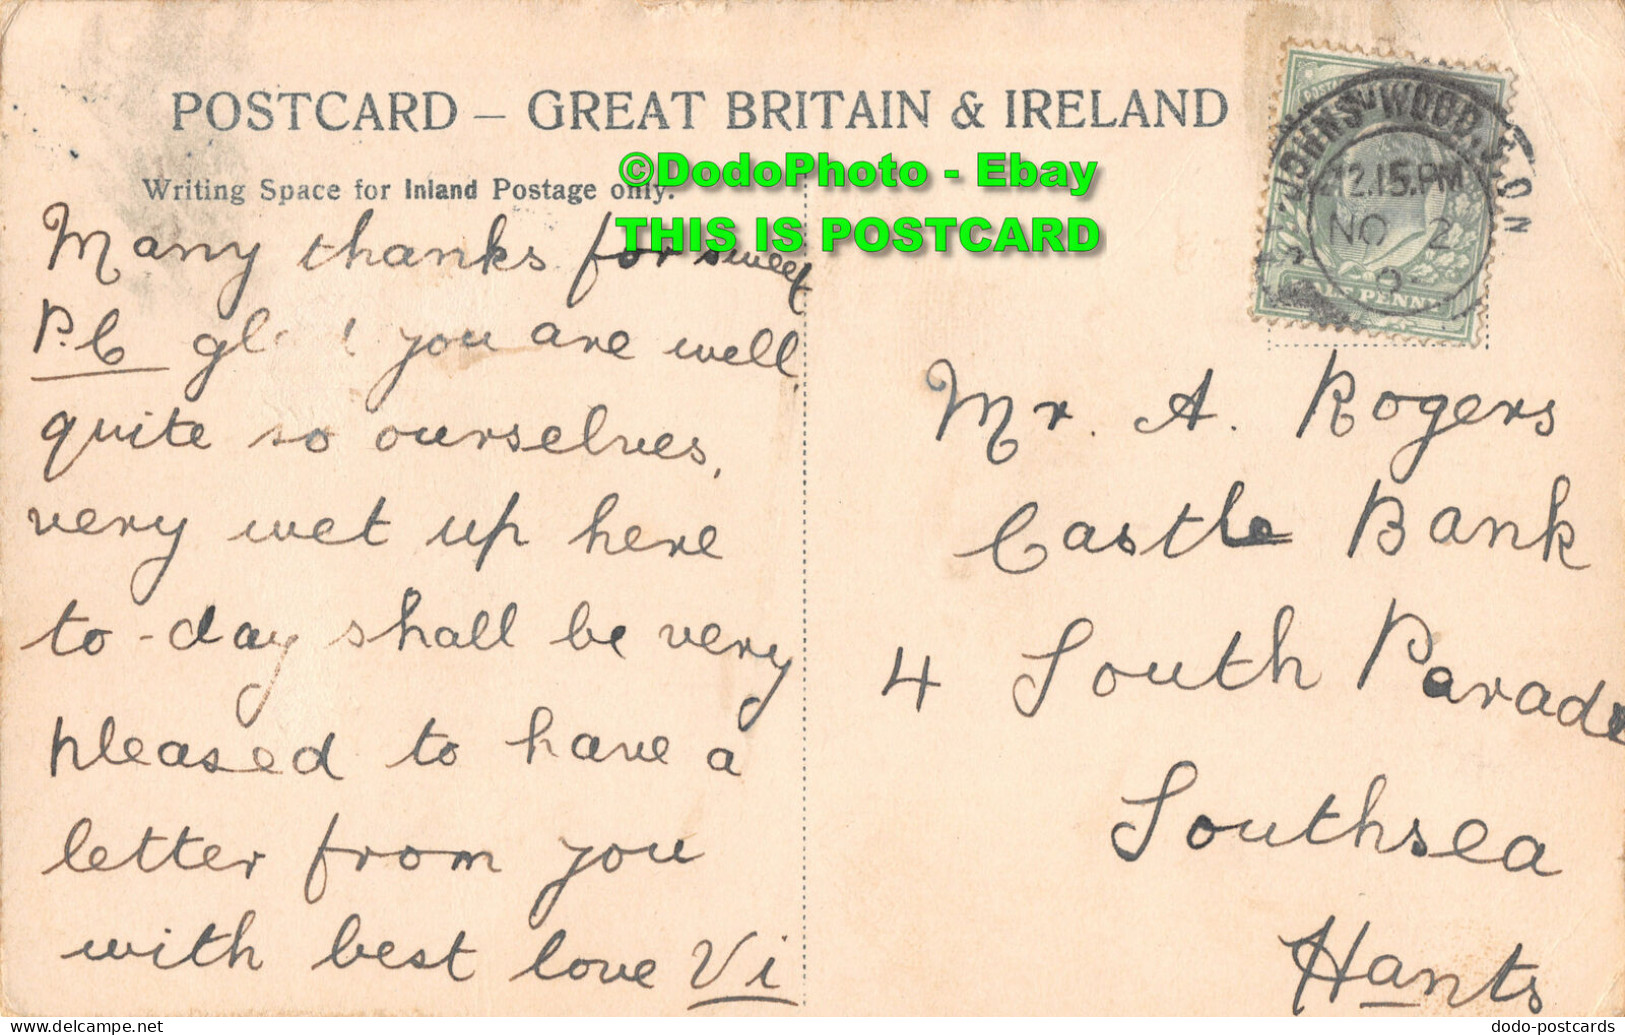 POSTCARD – GREAT BRITAIN & IRELAND
©DodoPhoto - Ebay
THIS IS POSTCARD
Writing Space for Inland Postage only.
Many thanks for sweet
P.C glad you are well,
quite so ourselves,
very wet up here
to-day shall be very
pleased to have a
letter from you
with best love Vi
ST JOHN'S WOOD.S.O N
12.15.PM
NO 2
HALF PENNY
Mr. A. Rogers
Castle Bank
4 South Parade
Southsea
Hants
dodo-postcards